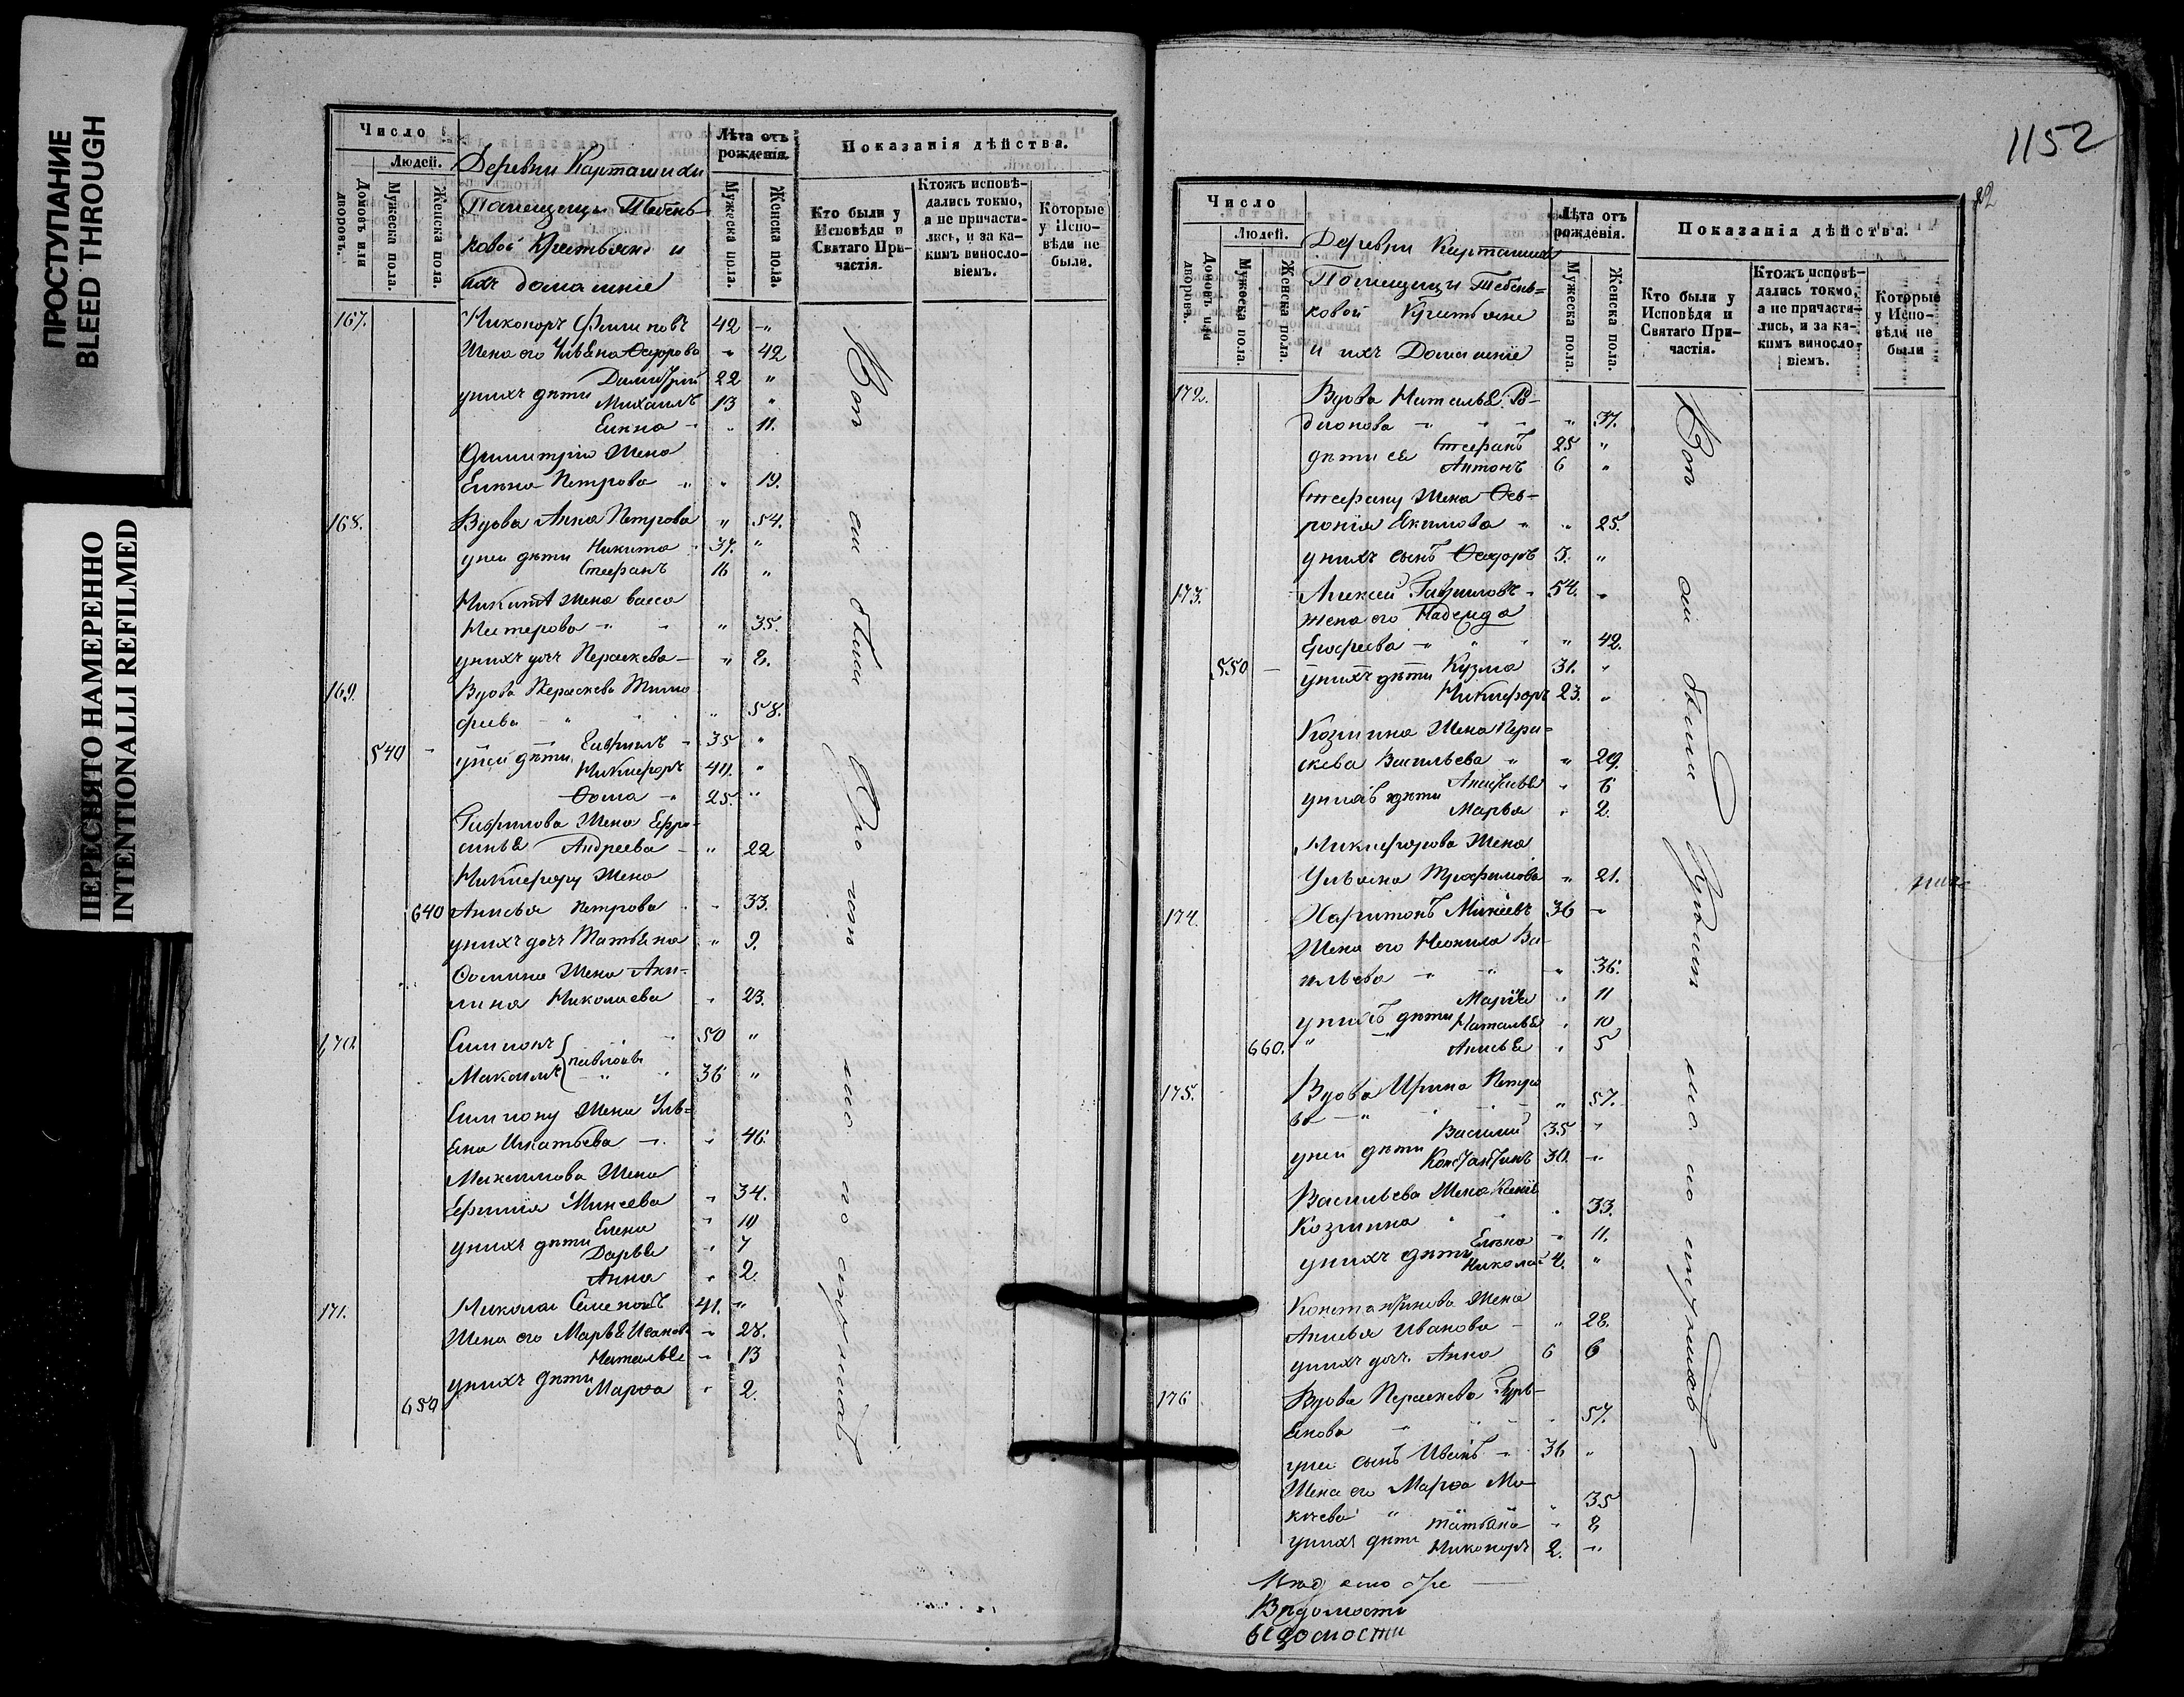 ПРОСТУПАНИЕ
BLEED THROUGH
ПЕРЕСНЯТО НАМЕРЕННО
INTENTIONALLI REFILMED
Число
Людей.
Домовъ или дворовъ.
Мужеска пола.
Женска пола.
Деревни Карташихи
Помещицы Тебень-
ковой Крестьяне и
ихъ домашніе
Лѣта отъ рожденія.
Мужеска пола.
Женска пола.
Показанія дѣйства.
Кто были у Исповѣди и Святаго Причастія.
Ктожъ исповѣдались токмо, а не причастились, и за какимъ винословіемъ.
Которые у Исповѣди не были.
167. Никоноръ Филиповъ 42 "
Жена его Ульяна Ѳедорова " 42
Димитрій 22 "
у нихъ дѣти Михаилъ 13 "
Елена " 11.
Димитрія Жена
Елена Петрова " " 19.
168. Вдова Анна Петрова " 54.
у ней дѣти Никита 37. "
Стефанъ 16 "
Никиты жена Васса
Нестерова " " 35.
у нихъ дочь Пераскева " 8.
169. Вдова Пераскева Тимо
феева " " 58.
540 у ней дѣти Гаврилъ 35 "
Никифоръ "
Ѳома 25. "
Гаврилова Жена Ефро-
синья Андреева " 22
Никифору Жена
640 Анисья Петрова " 33.
у нихъ дочь Татьяна " 9.
Ѳомина Жена Аку-
лина Николаева " 23.
170. Симионъ 50 "
Максимъ Павловы 36 "
Симиону Жена Уль-
яна Игнатьева " 46.
Максимова Жена
Ефимия Минеева " 34.
Елена " 10
у нихъ дѣти Дарья " 7
Анна " 2.
171. Николай Семеновъ 41. "
Жена его Марья Иванова " 28.
Наталья " 13
у нихъ дѣти Марѳа " 2.
650
Вси сіи были
1152
Число
Людей.
Домовъ или дворовъ.
Мужеска пола
Женска пола.
Деревни Карташихи
Помещицы Тебень-
ковой Крестьяне
и ихъ Домашніе
Лѣта отъ рожденія.
Мужеска пола.
Женска пола.
Показанія дѣйства.
Кто были у Исповѣди и Святаго Причастія.
Ктожъ исповѣдались токмо, а не причастились, и за какимъ винословіемъ.
Которые у Исповѣди не были
172. Вдова Наталья Ро-
дионова " " " 37.
дѣти ея Стефанъ 25 "
Антонъ 6 "
Стефану Жена Фев-
рония Екимова " " 25.
у нихъ сынъ Ѳедоръ 3. "
173. Алексей Гавриловъ 54. "
жена его Надежда
Ефреева " " " 42.
550 у нихъ дѣти Кузма 31. "
Никифоръ 23. "
Козмина Жена Пера-
скева Васильева " " 29.
у нихъ дѣти " 6
Марья " 2.
Никифорова Жена
Ульяна Трофимова " 21.
174. Харитонъ Минеевъ 36 "
Жена его Неонила Ва-
сильева " " " 36.
Марія " 11
у нихъ дѣти Наталья " 10
660. " Анисья " 5
175. Вдова Ирина Петро
ва " " " 57.
Василий 35 "
у ней дѣти Константинъ 30. "
Васильева Жена
Козмина " " 33.
Елена " 11.
у нихъ дѣти Николай 4. "
Константинова Жена
Анисья Иванова " 28.
у нихъ доч. Анна 6 6
176 Вдова Пераскева Гурь-
янова " " " 57.
у ней сынъ Иванъ 36 "
Жена его Марѳа Мо-
кеева " " 35
Татьяна " 8
у нихъ дѣти Никоноръ 2. "
Вси сіи были
Вѣдомости
вѣдомости